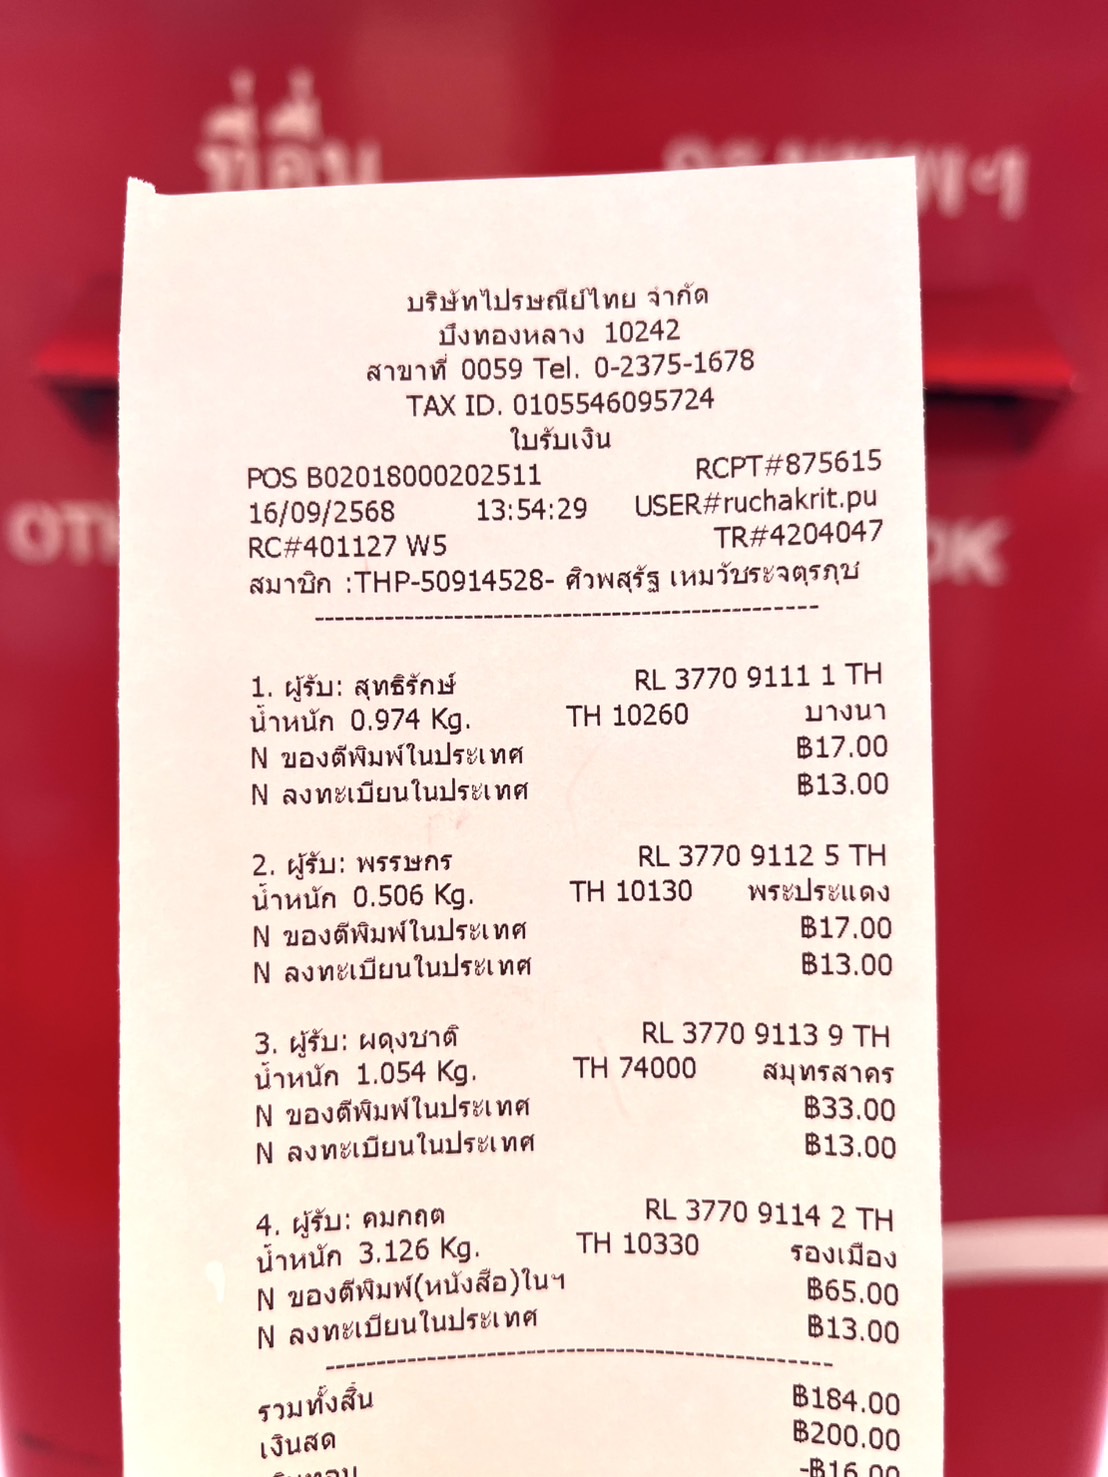 ที่อื่น
บริษัทไปรษณีย์ไทย จำกัด
บึงทองหลาง 10242
สาขาที่ 0059 Tel. 0-2375-1678
TAX ID. 0105546095724
ใบรับเงิน
POS B02018000202511 RCPT#875615
16/09/2568 13:54:29 USER#ruchakrit.pu
RC#401127 W5 TR#4204047
สมาชิก :THP-50914528- ศิวพสุรัฐ เหมวัชระจตุรภุช
1. ผู้รับ: สุทธิรักษ์ RL 3770 9111 1 TH
น้ำหนัก 0.974 Kg. TH 10260 บางนา
N ของตีพิมพ์ในประเทศ ฿17.00
N ลงทะเบียนในประเทศ ฿13.00
2. ผู้รับ: พรรษกร RL 3770 9112 5 TH
น้ำหนัก 0.506 Kg. TH 10130 พระประแดง
N ของตีพิมพ์ในประเทศ ฿17.00
N ลงทะเบียนในประเทศ ฿13.00
3. ผู้รับ: ผดุงชาติ RL 3770 9113 9 TH
น้ำหนัก 1.054 Kg. TH 74000 สมุทรสาคร
N ของตีพิมพ์ในประเทศ ฿33.00
N ลงทะเบียนในประเทศ ฿13.00
4. ผู้รับ: คมกฤต RL 3770 9114 2 TH
น้ำหนัก 3.126 Kg. TH 10330 รองเมือง
N ของตีพิมพ์(หนังสือ)ในฯ ฿65.00
N ลงทะเบียนในประเทศ ฿13.00
รวมทั้งสิ้น ฿184.00
เงินสด ฿200.00
-฿16.00